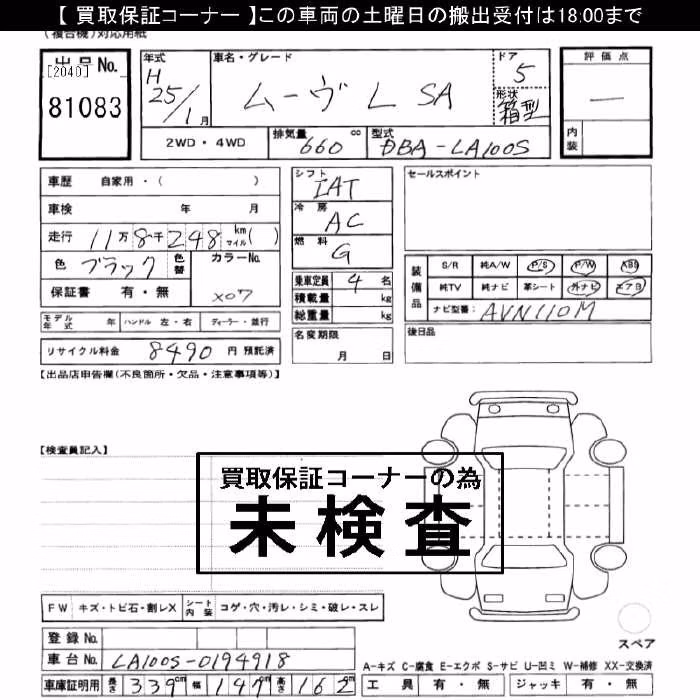 【 買取保証コーナー 】この車両の土曜日の搬出受付は18:00まで
(複合機)対応用紙
出品No.
[2040]
81083
年式 H 25/1月
車名・グレード
ムーヴ L SA
ドア 5
形状 箱型
2WD・4WD
排気量 660 cc
型式 DBA-LA100S
評価点
—
内装
車歴 自家用・( )
車検 年 月
走行 11万8千248 km マイル( )
色 ブラック 色替
カラーNo. X07
保証書 有・無
モデル年式 年 ハンドル 左・右 ディーラー・並行
リサイクル料金 8490 円 預託済
シフト IAT
冷房 AC
燃料 G
乗車定員 4 名
積載量 kg
総重量 kg
名変期限
月 日
セールスポイント
装備品
S/R 純A/W P/S P/W ABS
純TV 純ナビ 革シート 外ナビ エアB
ナビ型番: AVN110M
後日品
【出品店申告欄(不良箇所・欠品・注意事項等)】
【検査員記入】
買取保証コーナーの為
未検査
FW キズ・トビ石・割レX シート内装 コゲ・穴・汚レ・シミ・破レ・スレ
登録No.
車台No. LA100S-0194918
車庫証明用 長さ 339cm 幅 147cm 高さ 162cm
スペア
A-キズ C-腐食 E-エクボ S-サビ U-凹ミ W-補修 XX-交換済
工具 有・無 ジャッキ 有・無